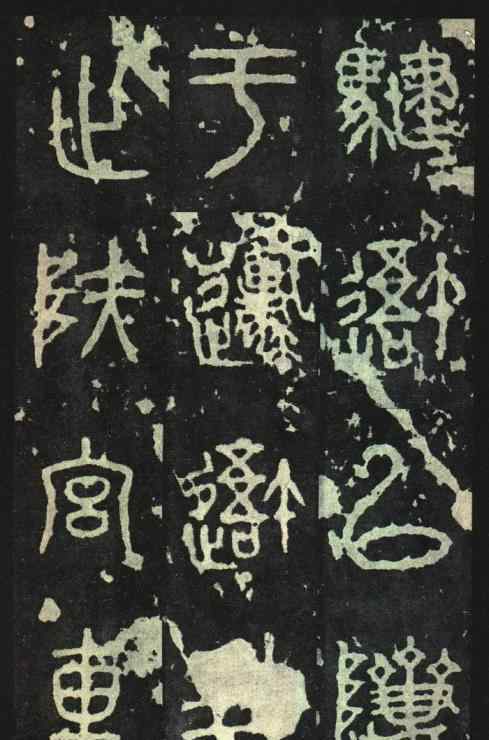 騝吾以隮
于邍吾
止陕宮車